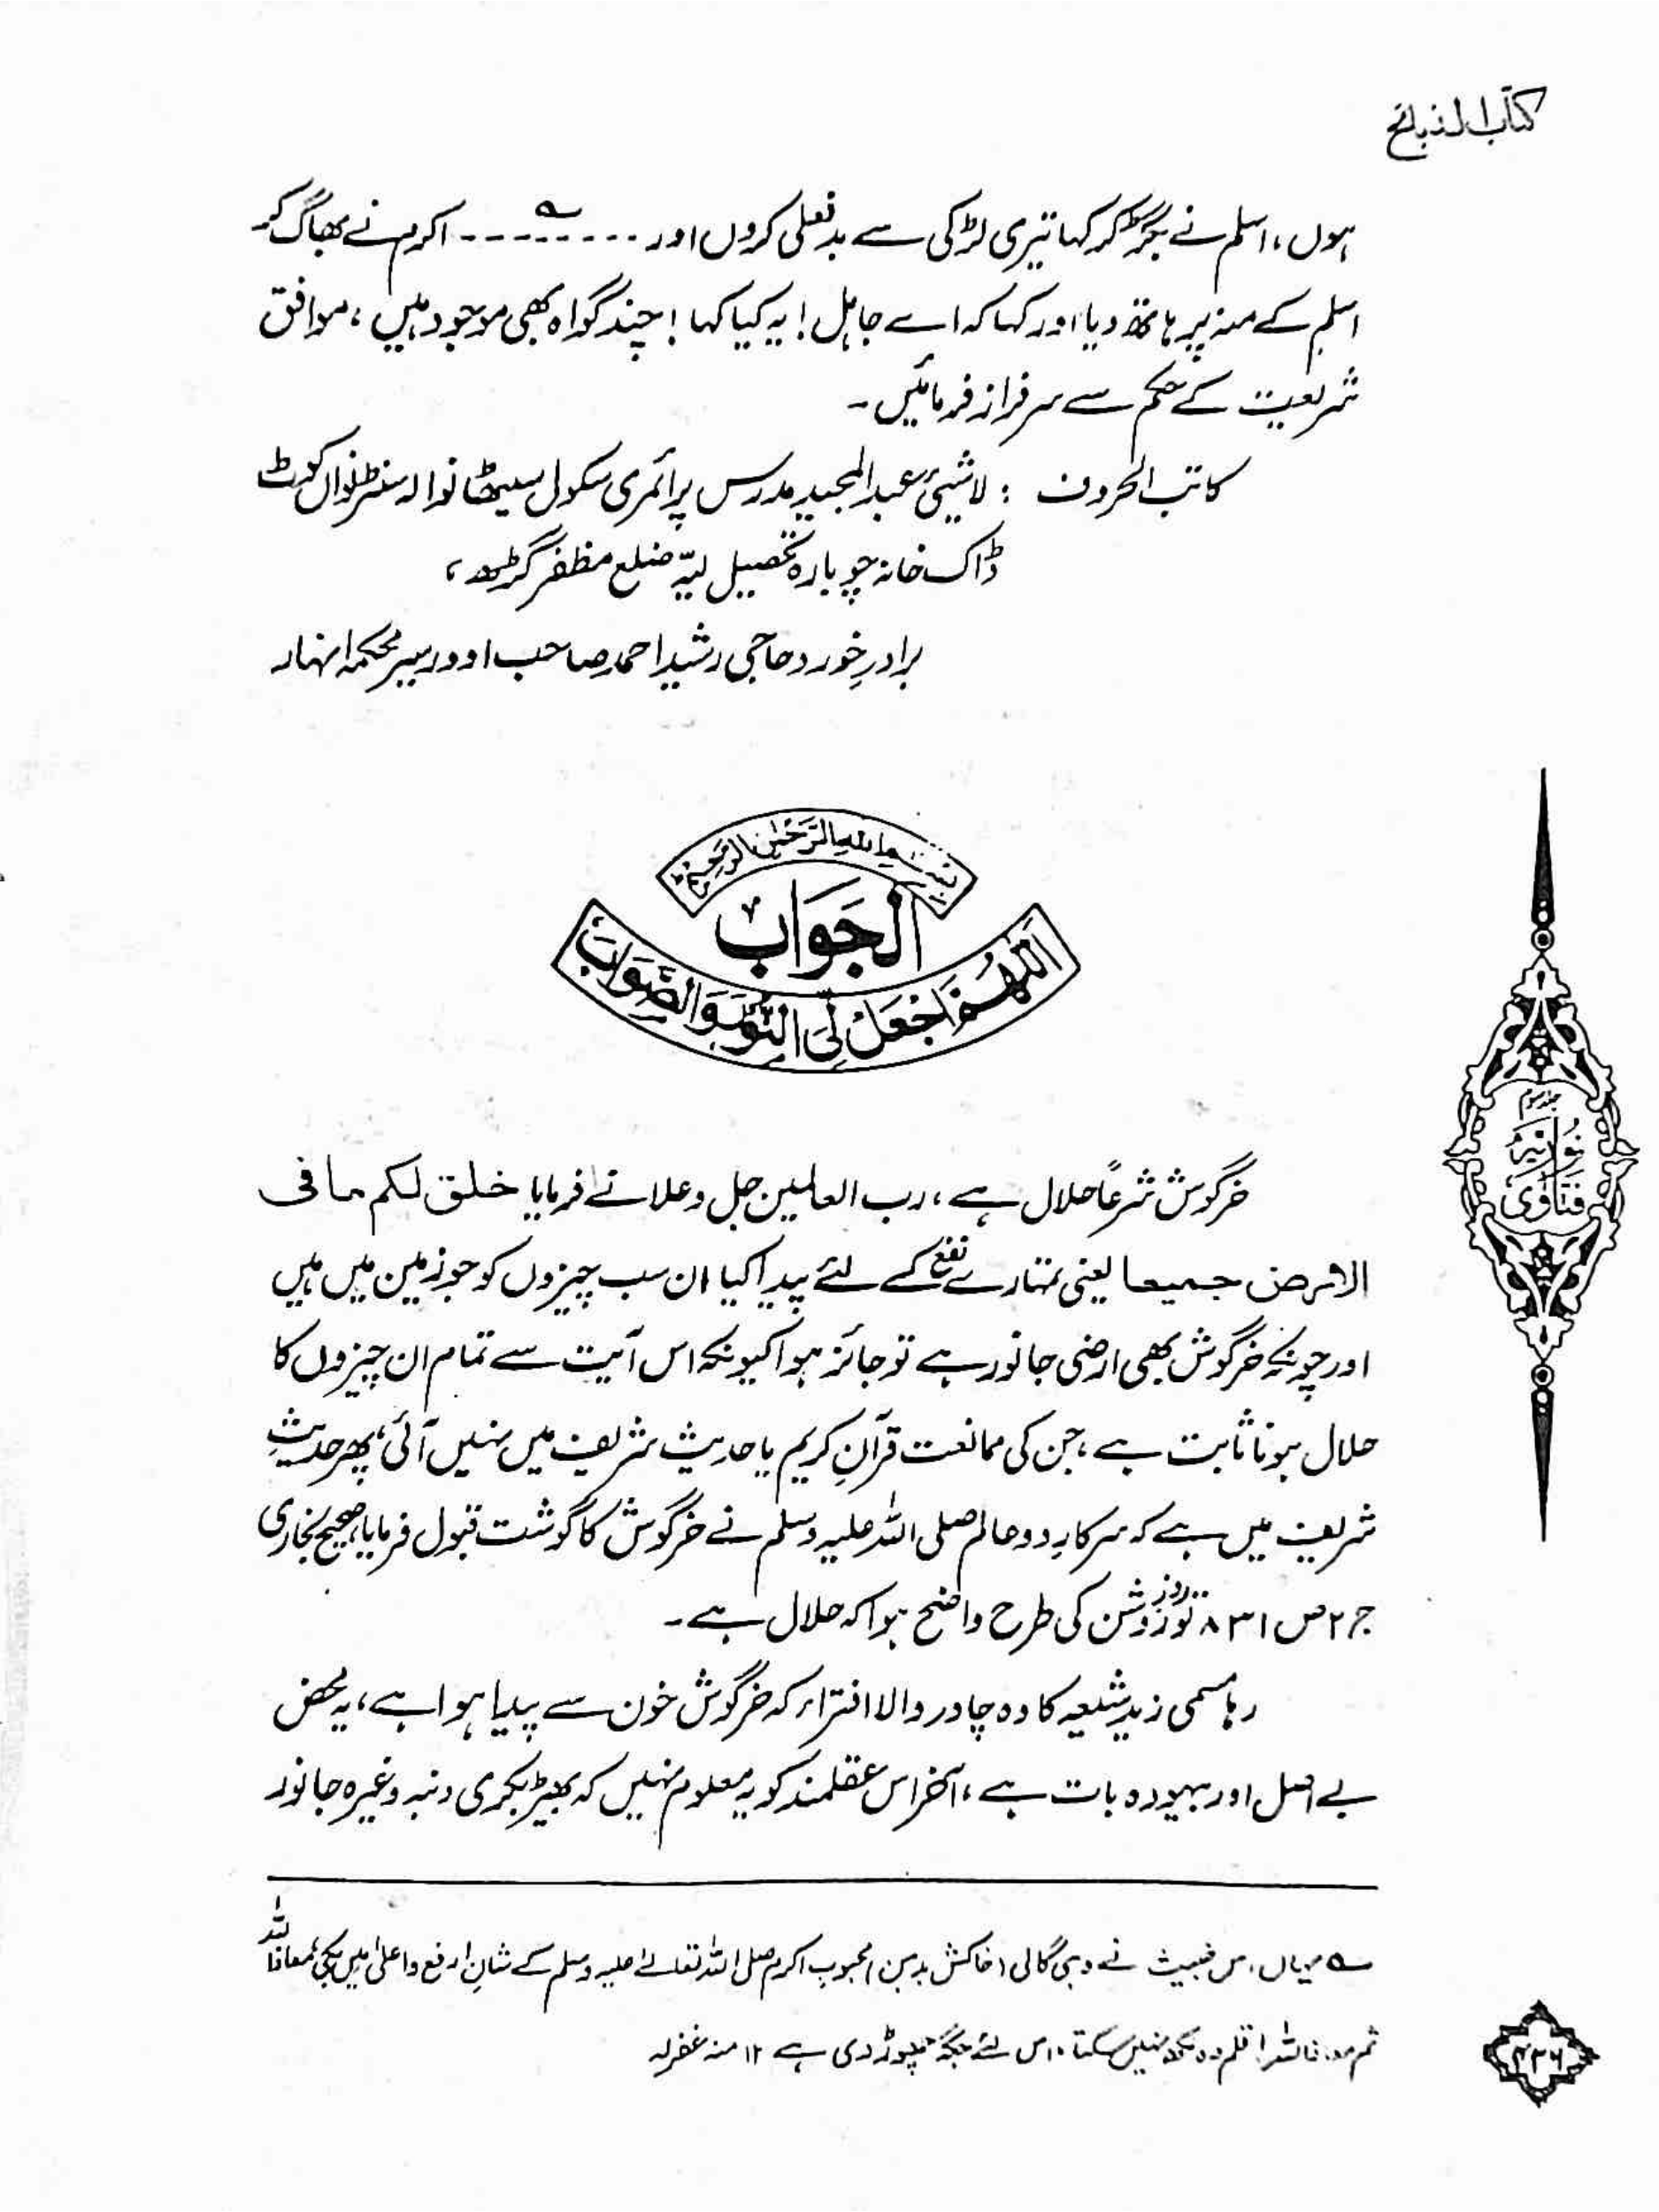 کتاب الذبائح
ہوں، اسلم نے بگڑ کر کہا تیری لڑکی سے بدفعلی کروں اور ---------؎ اکرم نے بھاگ کر
اسلم کے منہ پر ہاتھ دیا اور کہا کہ اے جاہل! یہ کیا کہا! چند گواہ بھی موجود ہیں، موافق
شریعت کے حکم سے سرفراز فرمائیں۔
کاتب الحروف : لاشیئ عبدالمجید مدرس پرائمری سکول سیٹھانوالہ سنٹر نواں کوٹ
ڈاک خانہ چوبارہ تحصیل لیّہ ضلع مظفر گڑھ،
برادرِ خورد حاجی رشید احمد صاحب اوورسیر محکمہ انہار
بسم اللہ الرحمٰن الرحیم
الجَوَابُ
اللّٰھُمَّ اجْعَلْ لِیَ النُّوْرَ وَالصَّوَابَ
خرگوش شرعاً حلال ہے، رب العالمین جل وعلا نے فرمایا خلق لکم ما فی
الارض جمیعا یعنی تمہارے نفع کے لئے پیدا کیا ان سب چیزوں کو جو زمین میں ہیں
اور چونکہ خرگوش بھی ارضی جانور ہے تو جائز ہوا کیونکہ اس آیت سے تمام ان چیزوں کا
حلال ہونا ثابت ہے، جن کی ممانعت قرآنِ کریم یا حدیث شریف میں نہیں آئی، پھر حدیثِ
شریف میں ہے کہ سرکارِ دوعالم صلی اللہ علیہ وسلم نے خرگوش کا گوشت قبول فرمایا، صحیح بخاری
ج ۲ ص ۸۳۱ تو روزِ روشن کی طرح واضح ہوا کہ حلال ہے۔
رہا مسمی زید شیعہ کا وہ چادر والا افتراء کہ خرگوش خون سے پیدا ہوا ہے، یہ محض
بے اصل اور بیہودہ بات ہے، آخر اس عقلمند کو یہ معلوم نہیں کہ بھیڑ بکری دنبہ وغیرہ جانور
؎ میاں اس خبیث نے وہی گالی (خاکش بدہن) محبوب اکرم صلی اللہ تعالےٰ علیہ وسلم کے شانِ ارفع واعلیٰ میں بکی، معاذ اللہ
ثم معاذ اللہ! قلم وہ لکھ نہیں سکتا، اس لئے جگہ چھوڑ دی ہے ۱۲ منہ غفرلہ
فتاویٰ
نوریہ
جلد سوم
۴۳۶